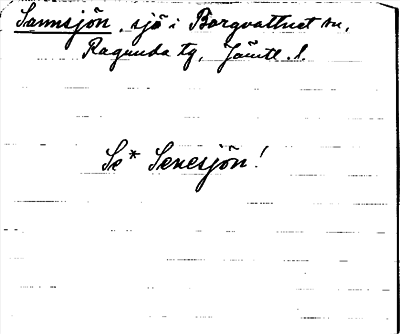 Sannsjön, sjö i Borgvattnet sn,
Ragunda tg, Jämtl. l.
Se* Senesjön!